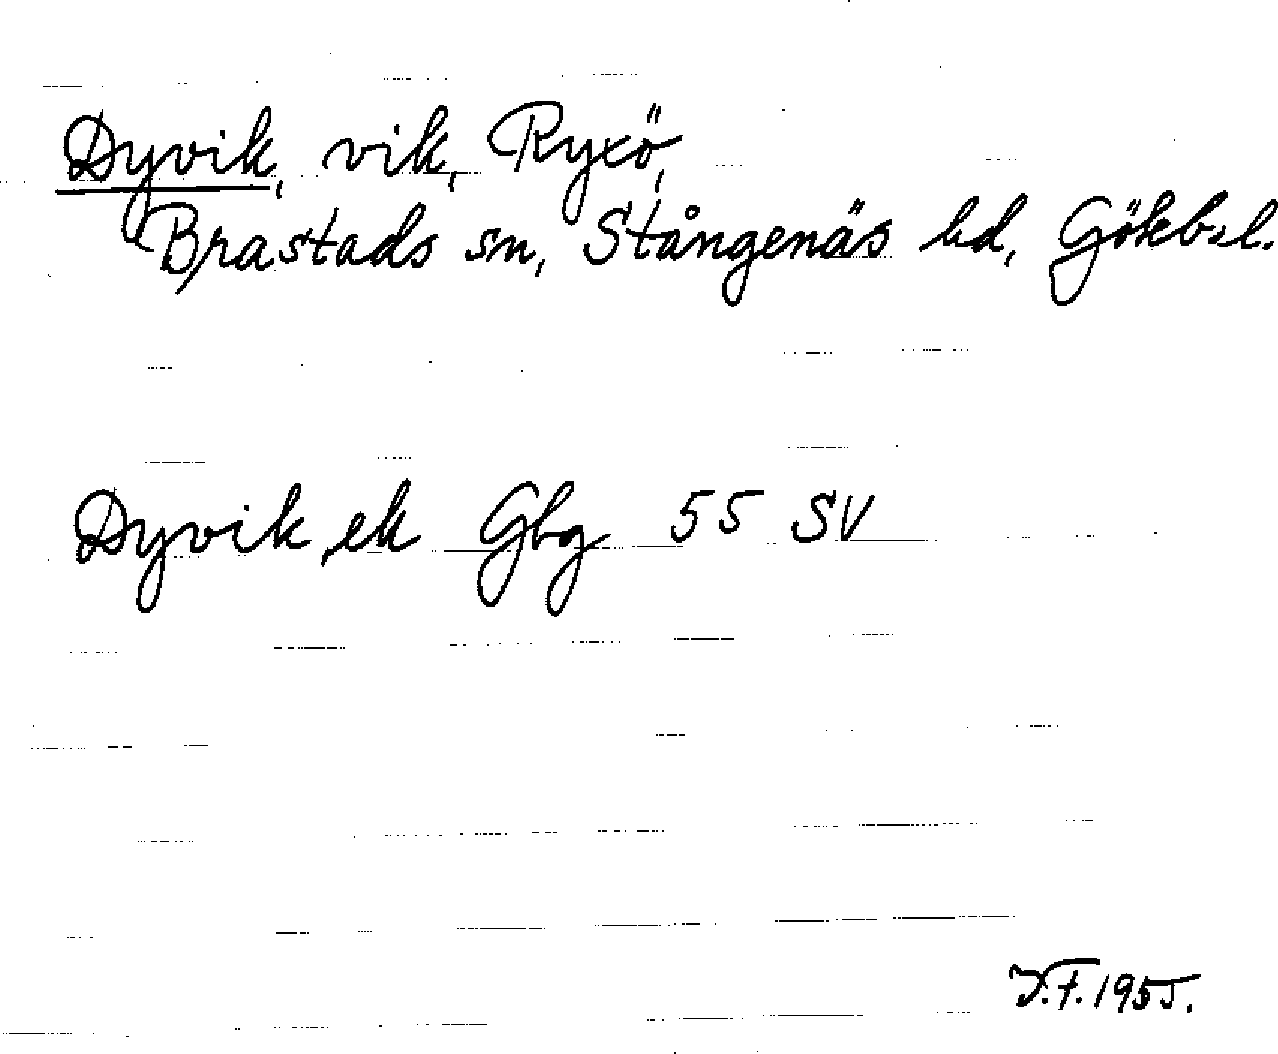 Dyvik, vik, Ryxö,
Brastads sn, Stångenäs hd, Gökbsl.
Dyvik, ek Gbg 55 SV
J.F. 1955.